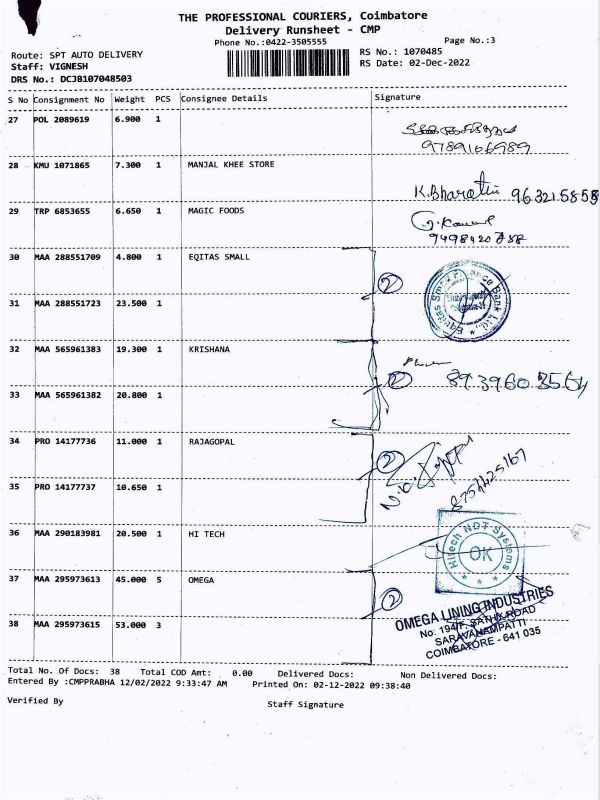 THE PROFESSIONAL COURIERS, Coimbatore
Delivery Runsheet - CMP
Phone No.:0422-3505555
Page No.:3
Route: SPT AUTO DELIVERY
RS No.: 1070485
Staff: VIGNESH
RS Date: 02-Dec-2022
DRS No.: DCJB107048503
S No Consignment No Weight PCS Consignee Details Signature
27 POL 2089619 6.900 1
9789166989
28 KMU 1071865 7.300 1 MANJAL KHEE STORE
K.Bharathi 963215858
29 TRP 6853655 6.650 1 MAGIC FOODS
30 MAA 288551709 4.800 1 EQITAS SMALL
2
Equitas Small Finance Bank Ltd.
31 MAA 288551723 23.500 1
32 MAA 565961383 19.300 1 KRISHANA
2 89.3960 3564
33 MAA 565961382 20.800 1
34 PRO 14177736 11.000 1 RAJAGOPAL
2
35 PRO 14177737 10.650 1
36 MAA 290183981 20.500 1 HI TECH
Hitech NDT Systems
OK
37 MAA 295973613 45.000 5 OMEGA
2
OMEGA LINING INDUSTRIES
No: 194/F, SATHY ROAD
SARAVANAMPATTI
COIMBATORE - 641 035
38 MAA 295973615 53.000 3
Total No. Of Docs: 38 Total COD Amt: 0.00 Delivered Docs: Non Delivered Docs:
Entered By :CMPPRABHA 12/02/2022 9:33:47 AM Printed On: 02-12-2022 09:38:40
Verified By
Staff Signature